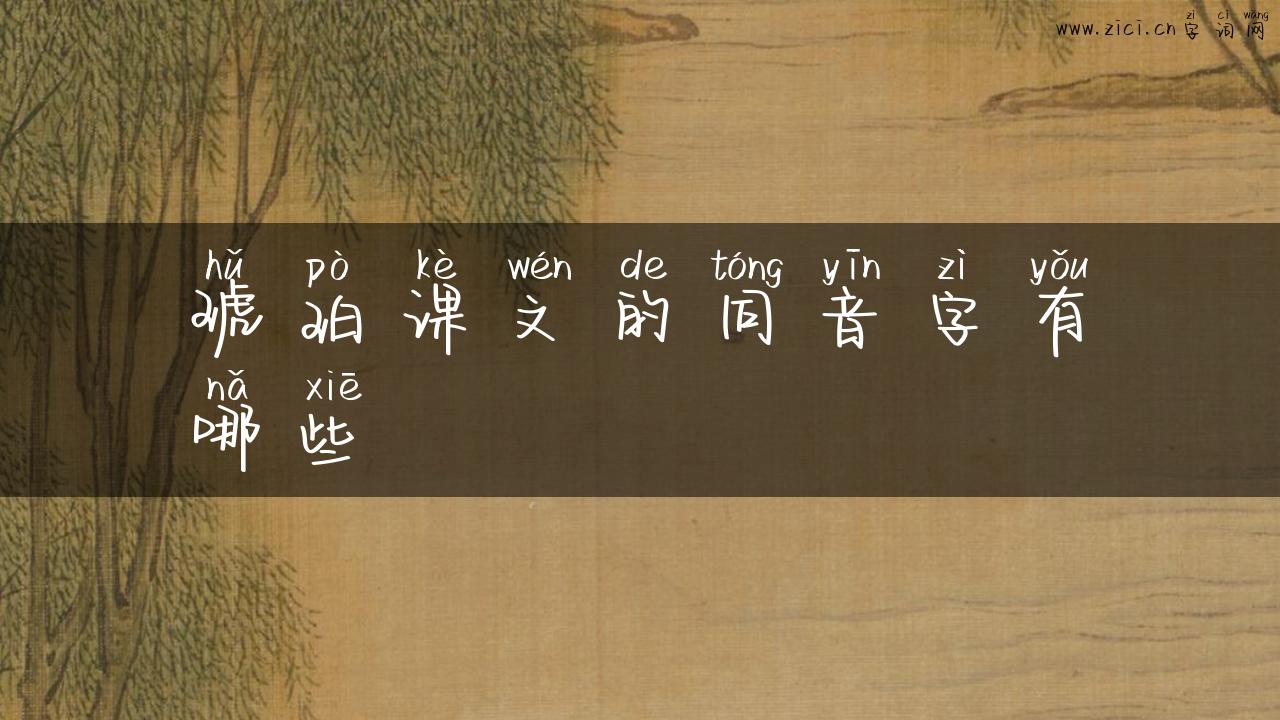 www.zici.cn zì cí wǎng
字词网
hǔ pò kè wén de tóng yīn zì yǒu
琥珀课文的同音字有
nǎ xiē
哪些